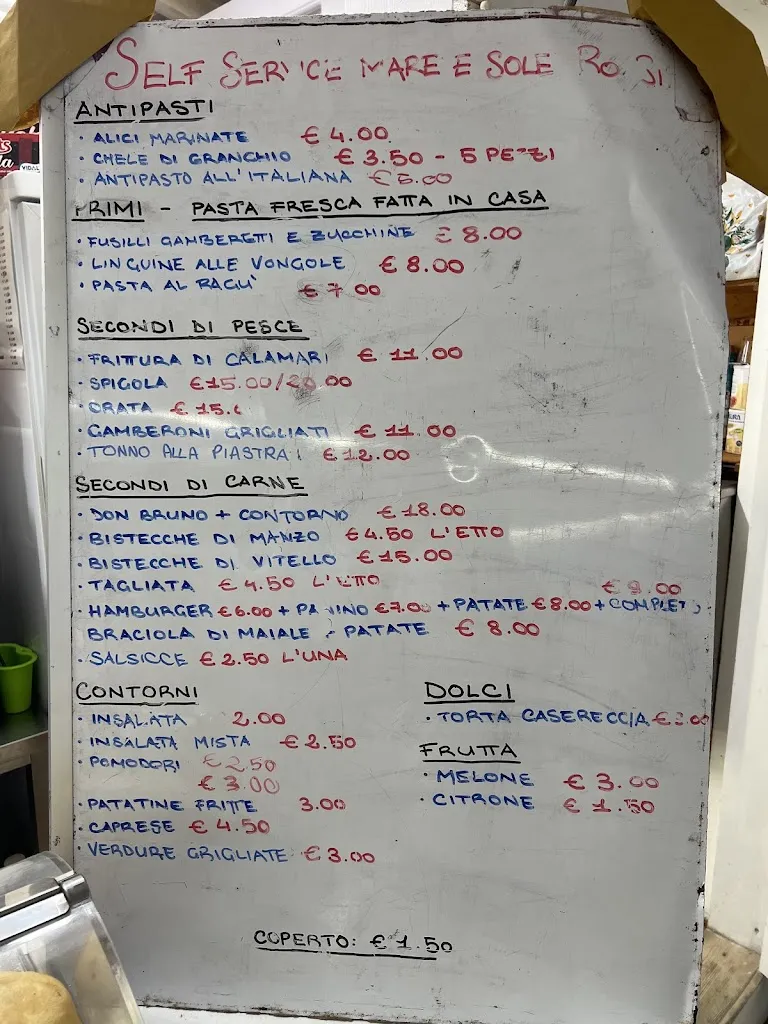 SELF SERVICE MARE E SOLE
ANTIPASTI
· ALICI MARINATE € 4.00
· CHELE DI GRANCHIO € 3.50 - 5 PEZZI
· ANTIPASTO ALL'ITALIANA
PRIMI - PASTA FRESCA FATTA IN CASA
· FUSILLI GAMBERETTI E ZUCCHINE € 8.00
· LINGUINE ALLE VONGOLE € 8.00
· PASTA AL RAGU' € 7 00
SECONDI DI PESCE
· FRITTURA DI CALAMARI € 11.00
· SPIGOLA € 15.00/20.00
· ORATA € 15.
· GAMBERONI GRIGLIATI € 11.00
· TONNO ALLA PIASTRA € 12.00
SECONDI DI CARNE
· DON BRUNO + CONTORNO € 18.00
· BISTECCHE DI MANZO € 4.50 L'ETTO
· BISTECCHE DI VITELLO € 15.00
· TAGLIATA € 4.50 L'ETTO
€ 9.00
· HAMBURGER € 6.00 + PANINO € 7.00 + PATATE € 8.00 + COMPLETO
BRACIOLA DI MAIALE - PATATE € 8.00
· SALSICCE € 2.50 L'UNA
CONTORNI
· INSALATA 2.00
· INSALATA MISTA € 2.50
· POMODORI € 2.50
€ 3.00
· PATATINE FRITTE 3.00
· CAPRESE € 4.50
· VERDURE GRIGLIATE € 3.00
DOLCI
· TORTA CASERECCIA
FRUTTA
· MELONE € 3.00
· CITRONE € 1.50
COPERTO: € 1.50